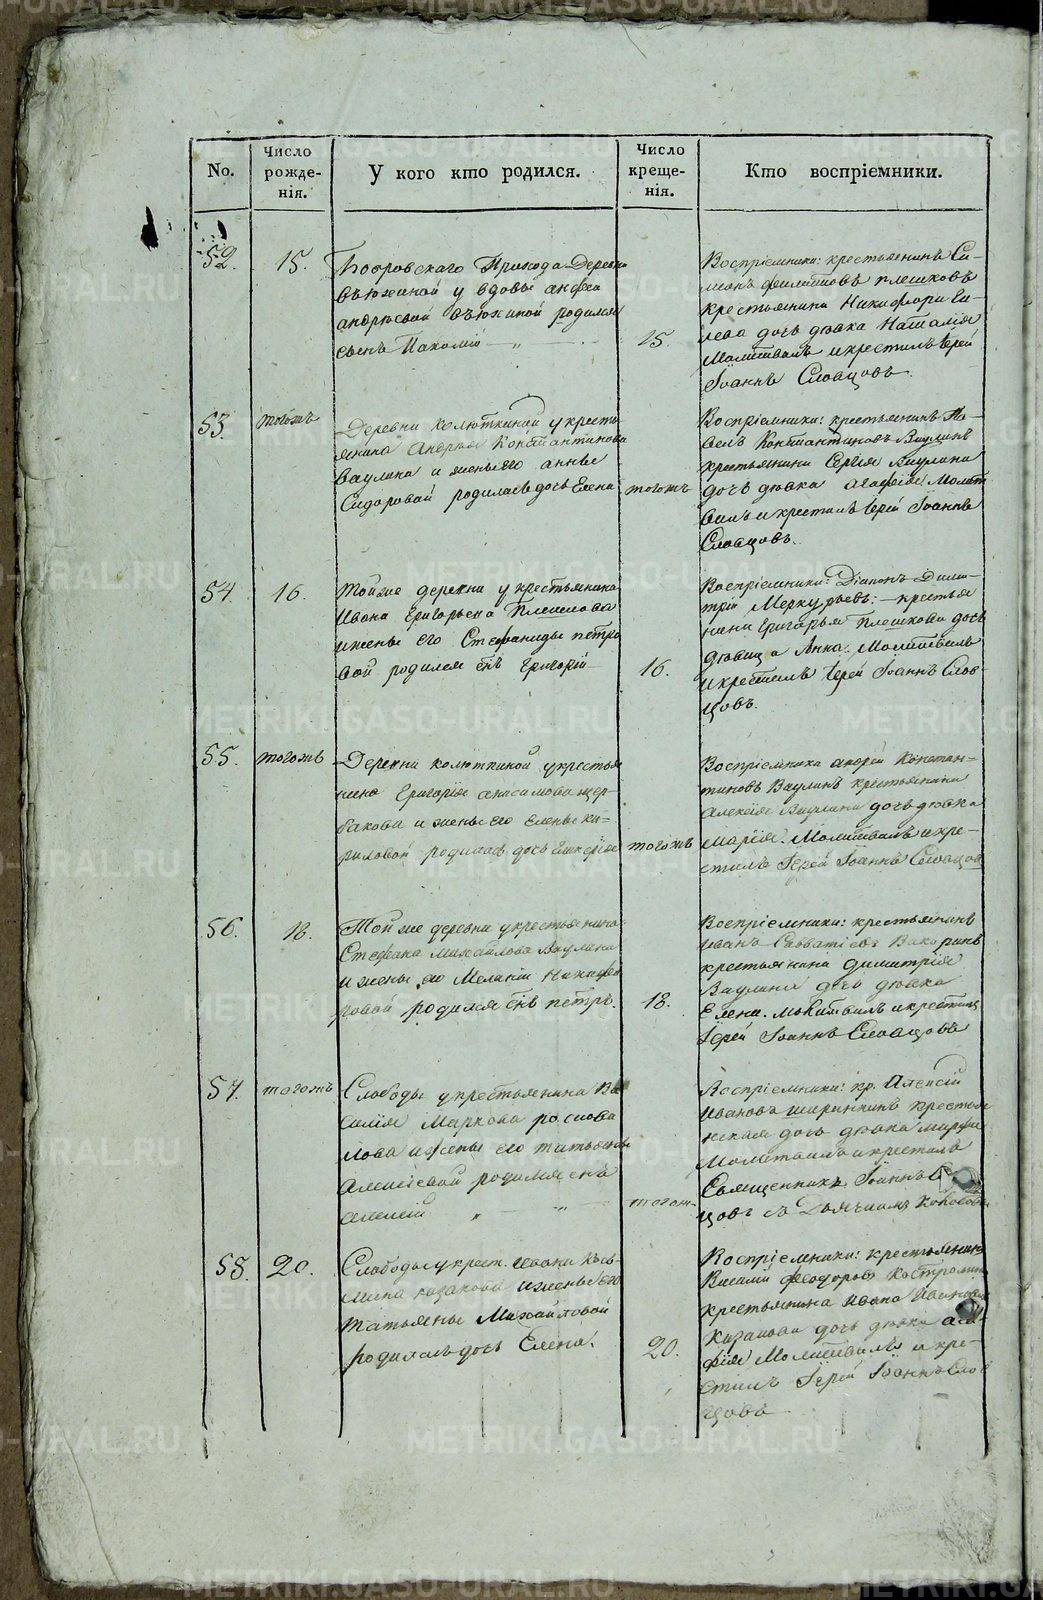 No.
Число
рожде-
нія.
У кого кто родился.
Число
креще-
нія.
Кто воспріемники.
52.
15.
Бобровскаго Прихода Деревни
Вьюхиной у вдовы
андреевой Вьюхиной родился
сынъ Пахомій
15.
Воспріемники: крестьянинъ Си-
монъ Филиповъ плешковъ
крестьянина Никифора Ки-
дочь девка Наталія
Молитвилъ и крестилъ Іерей
Іоаннъ Словцовъ.
53.
тогожъ
Деревни Колюткиной у кресть
янина Андрея Константинова
Ваулина и жены его Анны
Сидоровой родилась дочь Елена
тогожъ
Воспріемники: крестьянинъ Па-
велъ Константиновъ Ваулинъ
крестьянина Сергія Ваулина
дочь девка агафія Молит
вилъ и крестилъ Іерей Іоаннъ
Словцовъ.
54.
16.
Тойже деревни у крестьянина
Ивана Григорьева Плешкова
и жены его Стефаниды петро
вой родился сынъ Григорій
16.
Воспріемники: Діаконъ Дими-
трій Меркурьевъ: крестья
нина Григорья Плешкова дочь
девица Анна. Молитвилъ
и крестилъ Іерей Іоаннъ Слов-
цовъ.
55.
тогожъ
Деревни Колюткиной у крестья
нина Григорія анисимова щер-
бакова и жены его Елены ки-
риловой родилась дочь
тогожъ
Воспріемники андрей Констан-
тиновъ Ваулинъ крестьянина
Алексія Ваулина дочь девка
марія. Молитвилъ и кре-
стилъ Іерей Іоаннъ Словцовъ
56.
18.
Той же деревни у крестьянина
Стефана михайлова Ваулина
и жены его Меланіи Никифо
ровой родился сынъ петръ.
18.
Воспріемники: крестьянинъ
иванъ Савватіевъ
крестьянина димитрія
Ваулина дочь девка
Елена. молитвилъ и крестилъ
Іерей Іоаннъ Словцовъ
57.
тогожъ
Слободы у крестьянина Ва
силія Маркова
лова и жены его татьяны
алексіевой родился сынъ
алексій
тогожъ
Воспріемники: кр. Алексій
Ивановъ крестья
дочь девка марфа
Молитвилъ и крестилъ
Священникъ Іоаннъ Слов
цовъ съ
58.
20.
Слободы у крест. ивана Кось-
мина казакова и жены его
татьяны Михайловой
родилась дочь Елена.
20.
Воспріемники: крестьянинъ
Василій феодоровъ
крестьянина ивана Иванова
Казакова дочь девка ага-
фія Молитвилъ и кре-
стилъ Іерей Іоаннъ Слов
цовъ